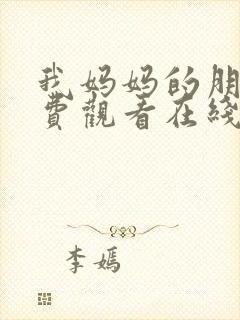 我妈妈的朋
費觀看在綫
李嫣